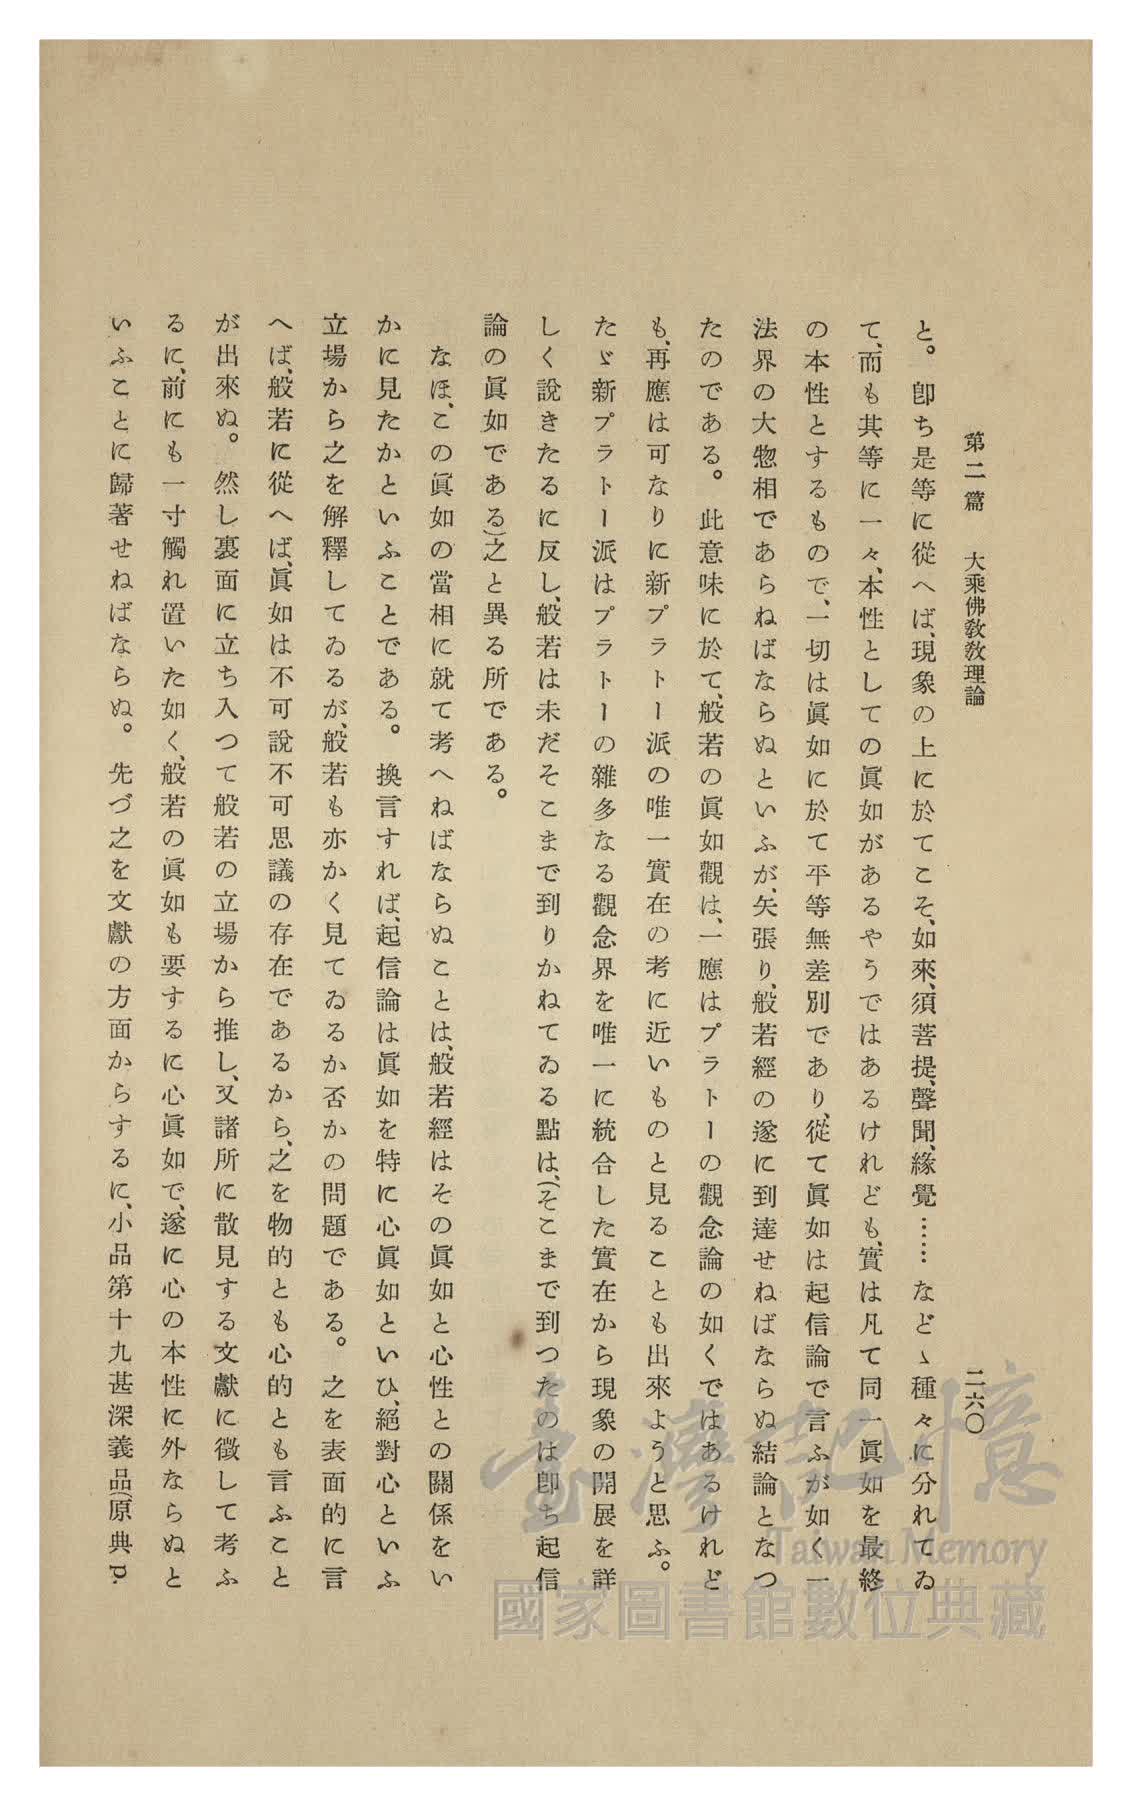 第二篇　大乘佛敎敎理論　二六〇
と。卽ち是等に從へば、現象の上に於てこそ、如來、須菩提、聲聞、緣覺……など、種々に分れてゐ
て、而も其等に一々、本性としての眞如があるやうではあるけれども、實は凡て同一眞如を最終
の本性とするもので、一切は眞如に於て平等無差別であり、從て眞如は起信論で言ふが如く一
法界の大惣相であらねばならぬといふが、矢張り、般若經の遂に到達せねばならぬ結論となつ
たのである。此意味に於て、般若の眞如觀は、一應はプラトーの觀念論の如くではあるけれど
も、再應は可なりに新プラトー派の唯一實在の考に近いものと見ることも出來ようと思ふ。
たゞ新プラトー派はプラトーの雜多なる觀念界を唯一に統合した實在から現象の開展を詳
しく說きたるに反し、般若は未だそこまで到りかねてゐる點は、(そこまで到つたのは卽ち起信
論の眞如である)之と異る所である。
なほ、この眞如の當相に就て考へねばならぬことは、般若經はその眞如と心性との關係をい
かに見たかといふことである。換言すれば、起信論は眞如を特に心眞如といひ、絕對心といふ
立場から之を解釋してゐるが、般若も亦かく見てゐるか否かの問題である。之を表面的に言
へば、般若に從へば、眞如は不可說不可思議の存在であるから、之を物的とも心的とも言ふこと
が出來ぬ。然し裏面に立ち入つて般若の立場から推し、又諸所に散見する文獻に徵して考ふ
るに、前にも一寸觸れ置いた如く、般若の眞如も要するに心眞如で、遂に心の本性に外ならぬと
いふことに歸著せねばならぬ。先づ之を文獻の方面からするに、小品第十九甚深義品(原典 p.
臺灣記憶
Taiwan Memory
國家圖書館數位典藏